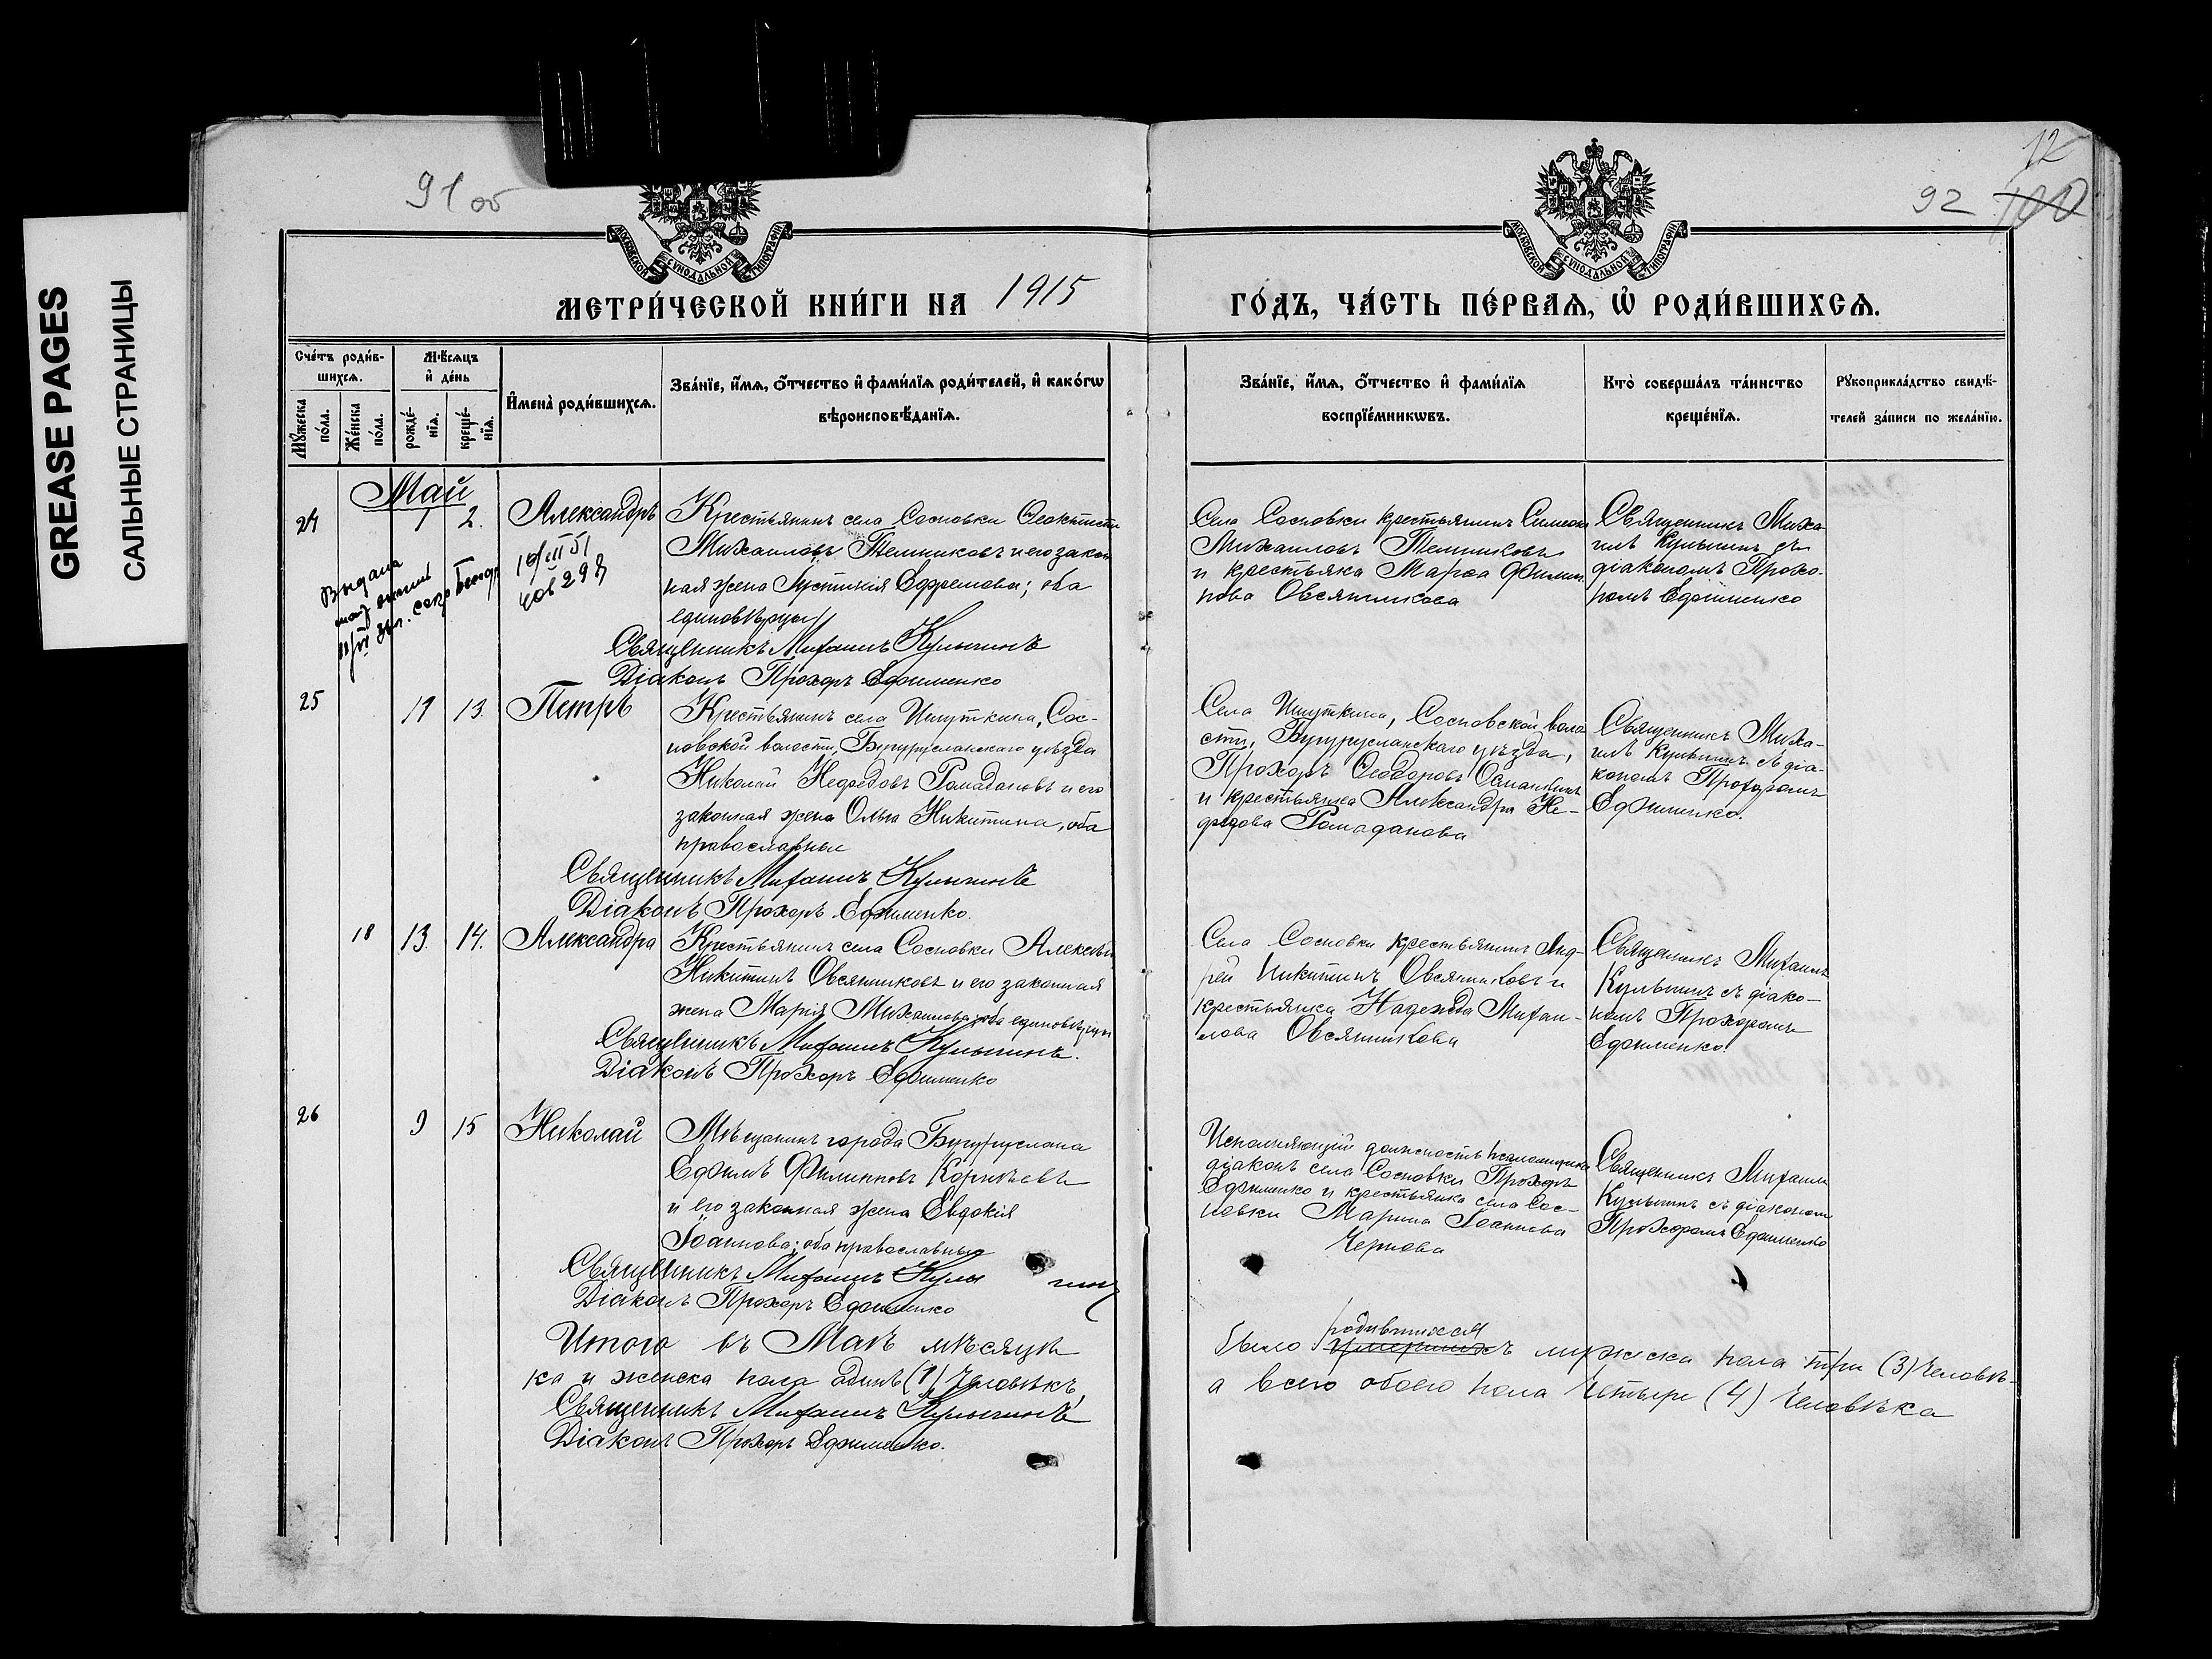 GREASE PAGES
САЛЬНЫЕ СТРАНИЦЫ
91об
12
92 100
МОСКОВСКОЙ СУНОДАЛЬНОЙ ТИПОГРАФІИ
МОСКОВСКОЙ СУНОДАЛЬНОЙ ТИПОГРАФІИ
МЕТРИ́ЧЕСКОЙ КНИ́ГИ НА 1915
ГО́ДЪ, ЧА́СТЬ ПЕ́РВАѦ, Ѡ҆ РОДИ́ВШИХСѦ.
Сче́тъ роди́в-
шихсѧ.
Мꙋ́жеска по́ла.
Же́нска по́ла.
Мѣ́сѧцъ
и҆ де́нь
рожде́-
нїѧ.
креще́-
нїѧ.
И҆мена̀ роди́вшихсѧ.
Зва́нїе, и҆́мѧ, ѻ҆́тчество и҆ фами́лїѧ роди́телей, и҆ како́гѡ
вѣроисповѣ́данїѧ.
Зва́нїе, и҆́мѧ, ѻ҆́тчество и҆ фами́лїѧ
воспрїе́мникѡвъ.
Кто̀ соверша́лъ та́инство
креще́нїѧ.
Рꙋкоприкла́дство свидѣ́-
телей за́писи по жела́нїю.
Май
24 1 2. Александръ
Крестьянинъ села Сосновки Ѳеоктистъ
Михаиловъ Темниковъ и его закон
ная жена Іустинія Ефремова; оба
единовѣрцы
Священникъ Михаилъ Кулыгинъ
Діаконъ Прохоръ Ефименко
Выдана
Села Сосновки крестьянинъ Симеонъ
Михаиловъ Темниковъ
и крестьянка Марѳа Филип
пова Овсянникова
Священникъ Миха
илъ Кулыгинъ съ
діакономъ Прохо-
ромъ Ефименко
25 11 13. Петръ
Крестьянинъ села Ишуткина, Сос-
новской волости, Бугурусланскаго уѣзда
Николай Нефедовъ Рамадановъ и его
законная жена Ольга Никитина, оба
православные
Священникъ Михаилъ Кулыгинъ
Діаконъ Прохоръ Ефименко.
Села Ишуткина, Сосновской воло
сти, Бугурусланскаго уѣзда,
Прохоръ Ѳеодоровъ
и крестьянка Александра Не-
федова Рамаданова
Священникъ Миха-
илъ Кулыгинъ съ діа-
кономъ Прохоромъ
Ефименко.
18 13. 14. Александра
Крестьянинъ села Сосновки Алексѣй
Никитинъ Овсянниковъ и его законная
жена Марія Михаилова, оба единовѣрцы
Священникъ Михаилъ Кулыгинъ.
Діаконъ Прохоръ Ефименко
Села Сосновки крестьянинъ Анд-
рей Никитинъ Овсянниковъ и
крестьянка Надежда Михаи-
лова Овсянникова
Священникъ Михаилъ
Кулыгинъ съ діако-
номъ Прохоромъ
Ефименко.
26 9 15 Николай
Мѣщанинъ города Бугуруслана
Ефимъ Филипповъ Корнѣевъ
и его законная жена Евдокія
Іоаннова; оба православные
Священникъ Михаилъ Кулыгинъ
Діаконъ Прохоръ Ефименко
Исполняющій должность псаломщика
діаконъ села Сосновки Прохоръ
Ефименко и крестьянка села Сос-
новки Марина Іоаннова
Чернова
Священникъ Михаилъ
Кулыгинъ съ діакономъ
Прохоромъ Ефименко
Итого въ Маѣ мѣсяцѣ было родившихся умершихъ мужеска пола три (3) человѣ-
ка и женска пола одинъ (1) человѣкъ, а всего обоего пола четыре (4) человѣка
Священникъ Михаилъ Кулыгинъ
Діаконъ Прохоръ Ефименко.